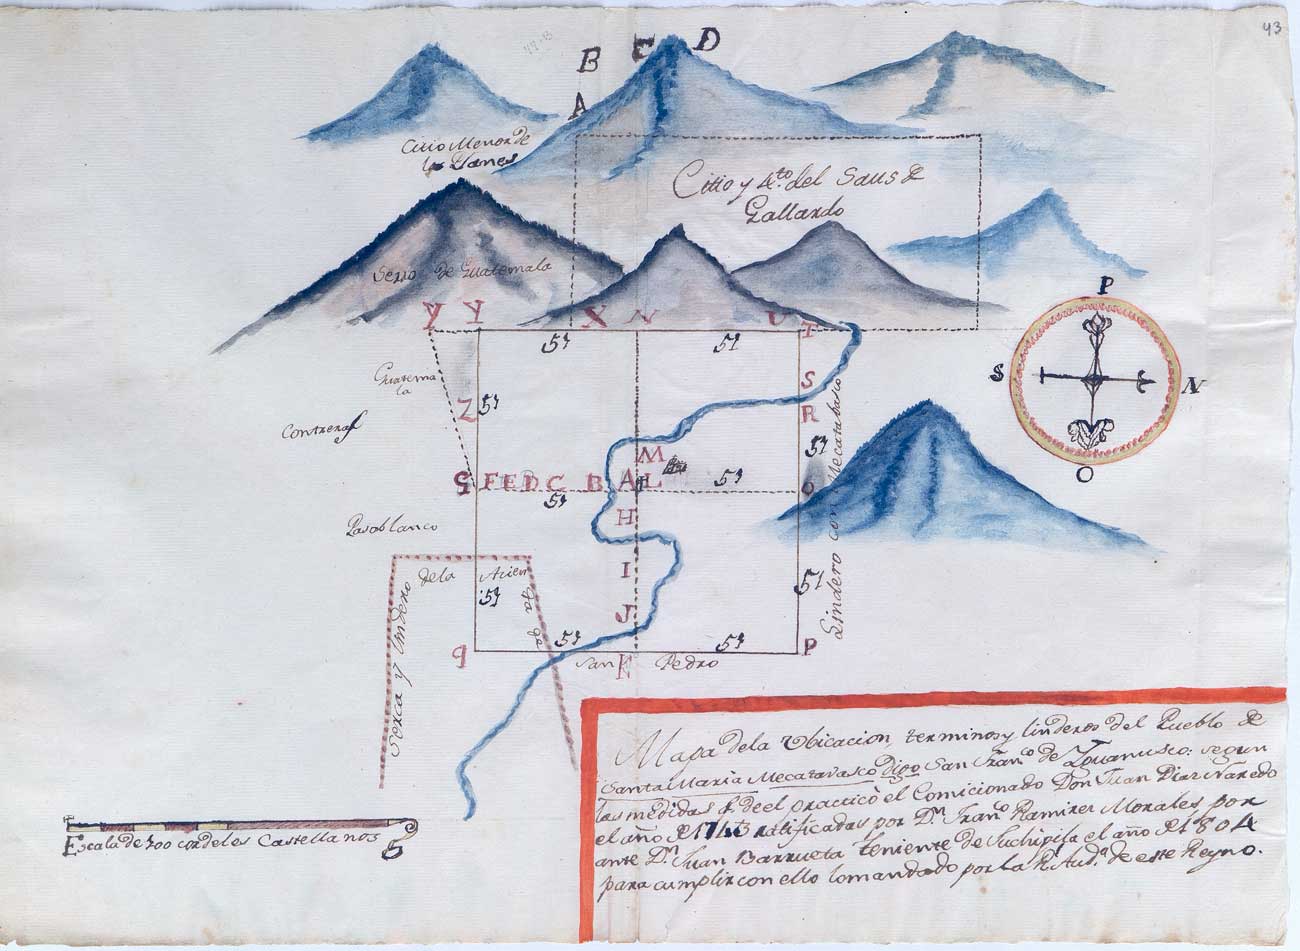 43
B E D
A
Citio Menor de
los Llanes
Citio y 4.to del Saus de
Gallardo
Serro de Guatemala
Y Y X N U T
51 51
Guatema
la
Z 51
S
R
Contreras
M
51
G F E D C B A L O
51 51
H
Pasoblanco
I
51
J
de la Acien
51
da
Serca y lindero
Lindero con Mecatabasco
q 51 51 P
San F Pedro
P
S N
O
Escala de 200 cordeles Castellanos
Mapa de la Vbicacion, terminos y linderos del Pueblo de
Santa Maria Mecatavasco digo San Fran.co de Touanusco: segun
las medidas q de el practicò el Comicionado Don Juan Diaz Naredo
el año de 1743 ratificadas por D.n Fran.o Ramirez Morales por
ante D.n Juan Barrueta teniente de Suchipila el año de 1804
para cumplir con ello lo mandado por la R.l Aud.a de este Reyno.